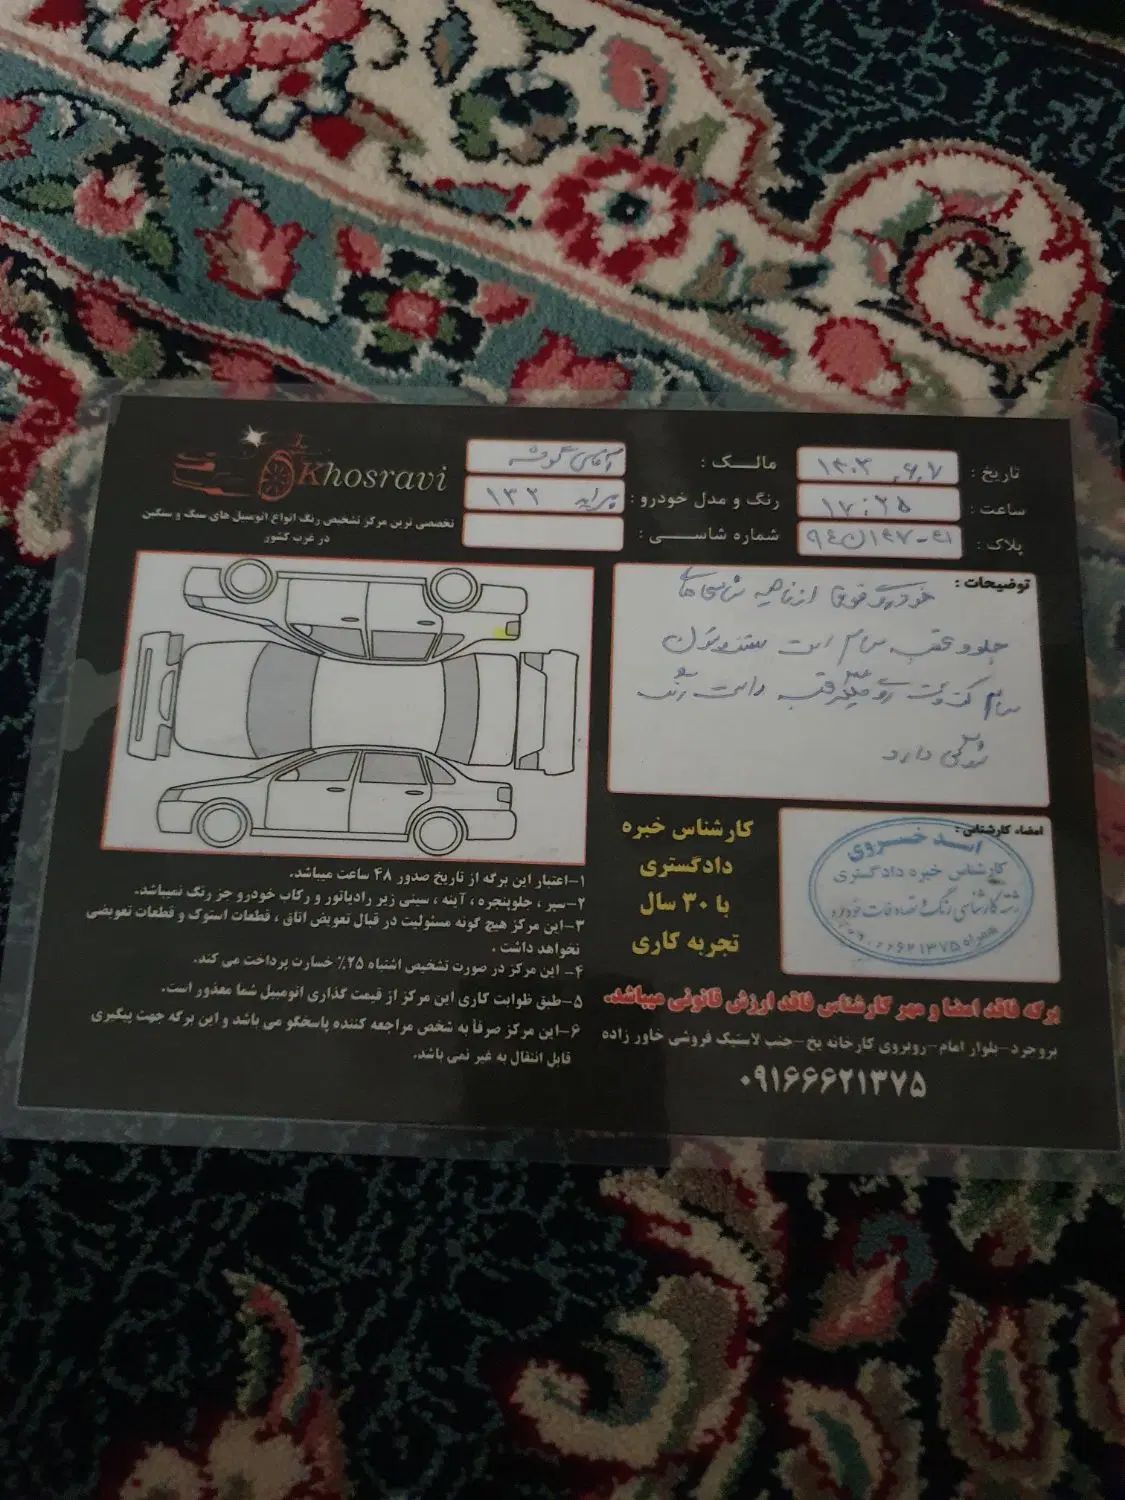 Khosravi
تخصصی ترین مرکز تشخیص رنگ انواع اتومبیل های سبک و سنگین
در غرب کشور
تاریخ : ۱۴۰۳,۶,۷
ساعت : ۱۷:۲۵
پلاک :
مالک : آقای
رنگ و مدل خودرو : پراید ۱۳۲
شماره شاسی :
توضیحات :
خودرو فوق از ناحیه شاسی های
جلو و عقب سالم است ستون
سالم گلگیر عقب راست رنگ
دارد
کارشناس خبره
دادگستری
با ۳۰ سال
تجربه کاری
امضاء کارشناس :
اسد خسروی
کارشناس خبره دادگستری
رشته کارشناسی رنگ و تصادفات خودرو
همراه ۰۹۱۶۶۶۲۱۳۷۵
۱-اعتبار این برگه از تاریخ صدور ۴۸ ساعت میباشد.
۲-سپر ، جلوپنجره ، آینه ، سینی زیر رادیاتور و رکاب خودرو جز رنگ نمیباشد.
۳-این مرکز هیچ گونه مسئولیت در قبال تعویض اتاق ، قطعات استوک و قطعات تعویضی
نخواهد داشت .
۴- این مرکز در صورت تشخیص اشتباه ۲۵٪ خسارت پرداخت می کند.
۵-طبق ظوابت کاری این مرکز از قیمت گذاری اتومبیل شما معذور است.
۶-این مرکز صرفاً به شخص مراجعه کننده پاسخگو می باشد و این برگه جهت پیگیری
قابل انتقال به غیر نمی باشد.
برگه فاقد امضا و مهر کارشناس فاقد ارزش قانونی میباشد.
بروجرد-بلوار امام-روبروی کارخانه یخ-جنب لاستیک فروشی خاور زاده
۰۹۱۶۶۶۲۱۳۷۵